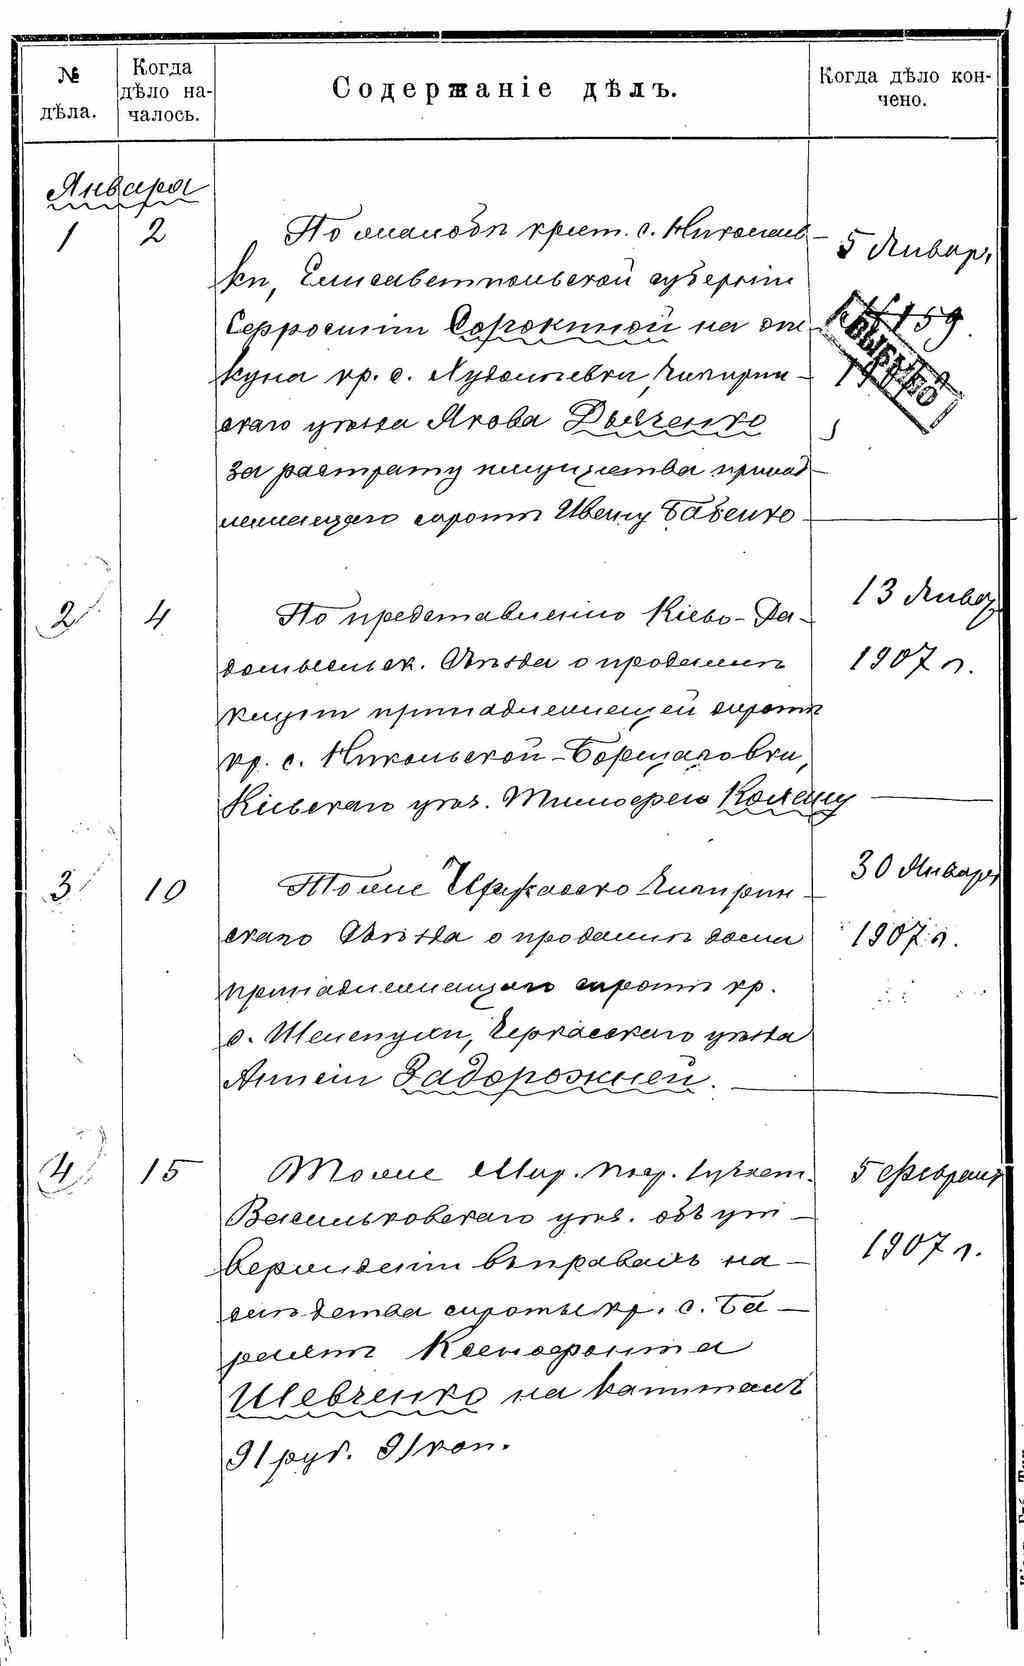 № дѣла.
Когда дѣло началось.
Содержаніе дѣлъ.
Когда дѣло кончено.
Января
1 2 По жалобѣ крест. с. Николаев-
ки, Елисаветпольской губерніи
Сорокиной на опе-
куна кр. с. Худолѣевки, Чигирин-
скаго уѣзда Якова Дьяченко
за растрату имущества принад-
лежащаго сиротѣ Ивану Бабенко
5 Январ.
159
ВЫБЫЛО
2 4 По представленію Кіево-Ра-
домысльск. Съѣзда о продажѣ
принадлежащей сиротѣ
кр. с. Никольской-Борщаговки,
Кіевскаго уѣз. Тимофею
13 Январ
1907 г.
3 10 Тоже Черкасско-Чигирин-
скаго Съѣзда о продажѣ дома
принадлежащаго сиротѣ кр.
с. Шелепухи, Черкасскаго уѣзда
Анисіи Задорожней.
30 Января
1907 г.
4 15 Тоже Мир. Поср. 1 участ.
Васильковскаго уѣз. объ ут-
вержденіи въ правахъ на-
слѣдства сироты кр. с. Ба-
рахтъ Ксенофонта
Шевченко на капиталъ
91 руб. 91 коп.
5 Февраля
1907 г.